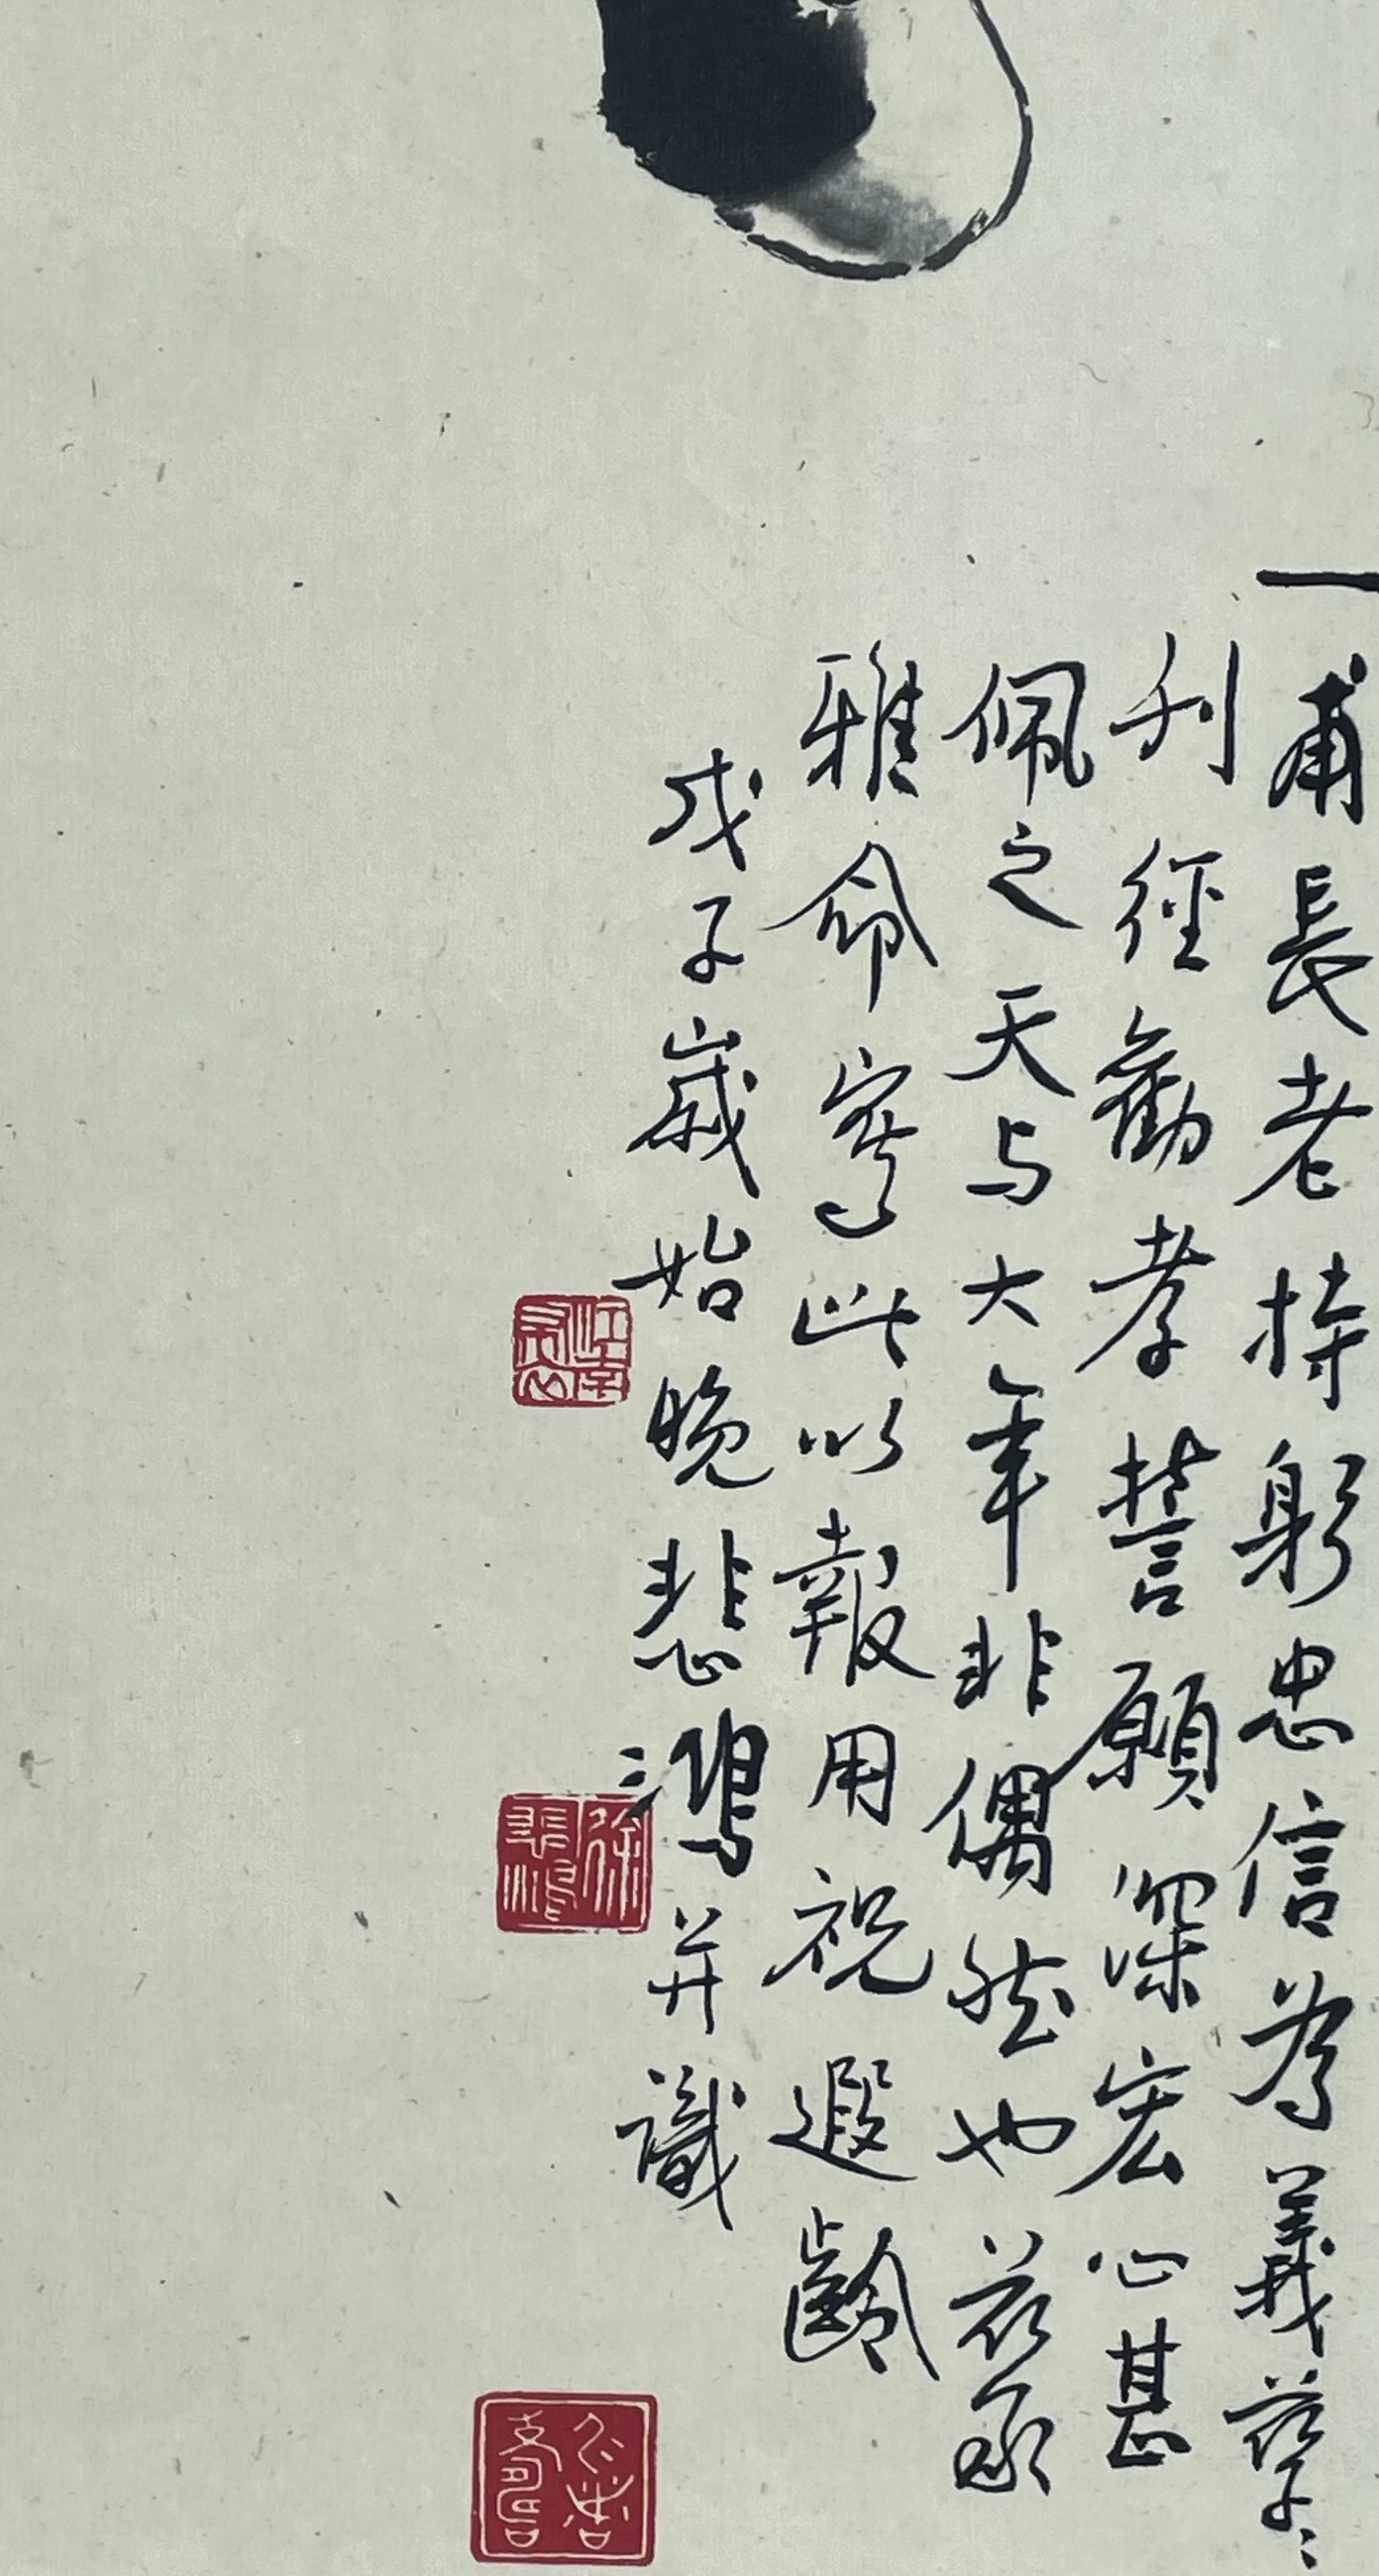 一甫長老持躬忠信為義孳〻
利徑勸孝誓願深宏心甚
佩之天与大年非偶然也茲承
雅命寫此以報用祝遐齡
戊子歲始晚悲鴻并識
江南
徐悲鴻